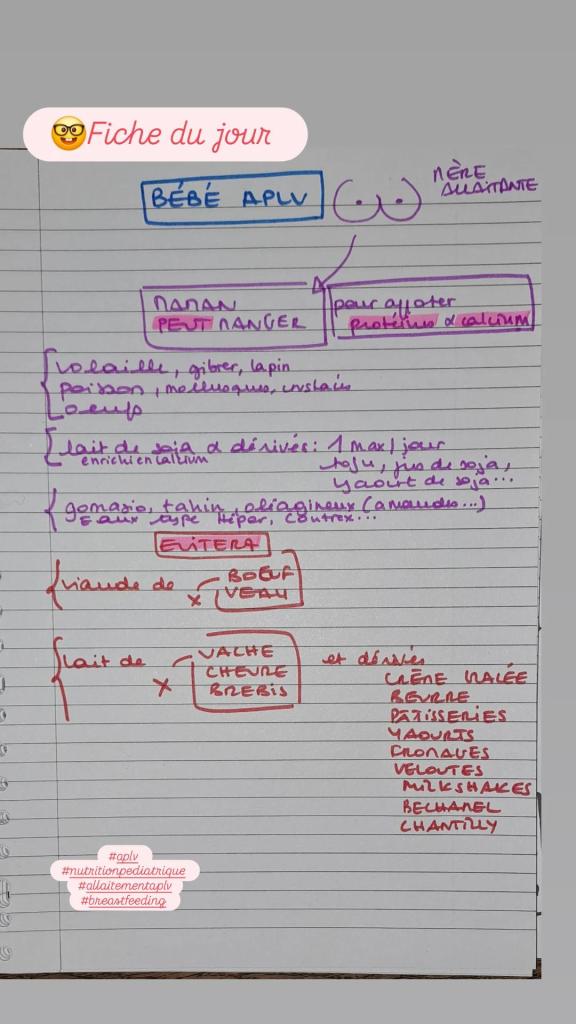 🤓Fiche du jour
BÉBÉ APLV
MÈRE
ALLAITANTE
MAMAN
PEUT MANGER
pour apporter
protéines & calcium
volaille, gibier, lapin
poisson, mollusques, crustacés
oeufs
lait de soja & dérivés: 1 max/jour
enrichi en calcium
tofu, jus de soja,
yaourt de soja...
gomasio, tahin, oléagineux (amandes...)
Eaux type Hépar, Contrex...
EVITERA
viande de
BOEUF
VEAU
lait de
VACHE
CHEVRE
BREBIS
et dérivés
CRÈME
BEURRE
PÂTISSERIES
YAOURTS
FROMAGES
VELOUTES
MILKSHAKES
BECHAMEL
CHANTILLY
#aplv
#nutritionpediatrique
#allaitementaplv
#breastfeeding